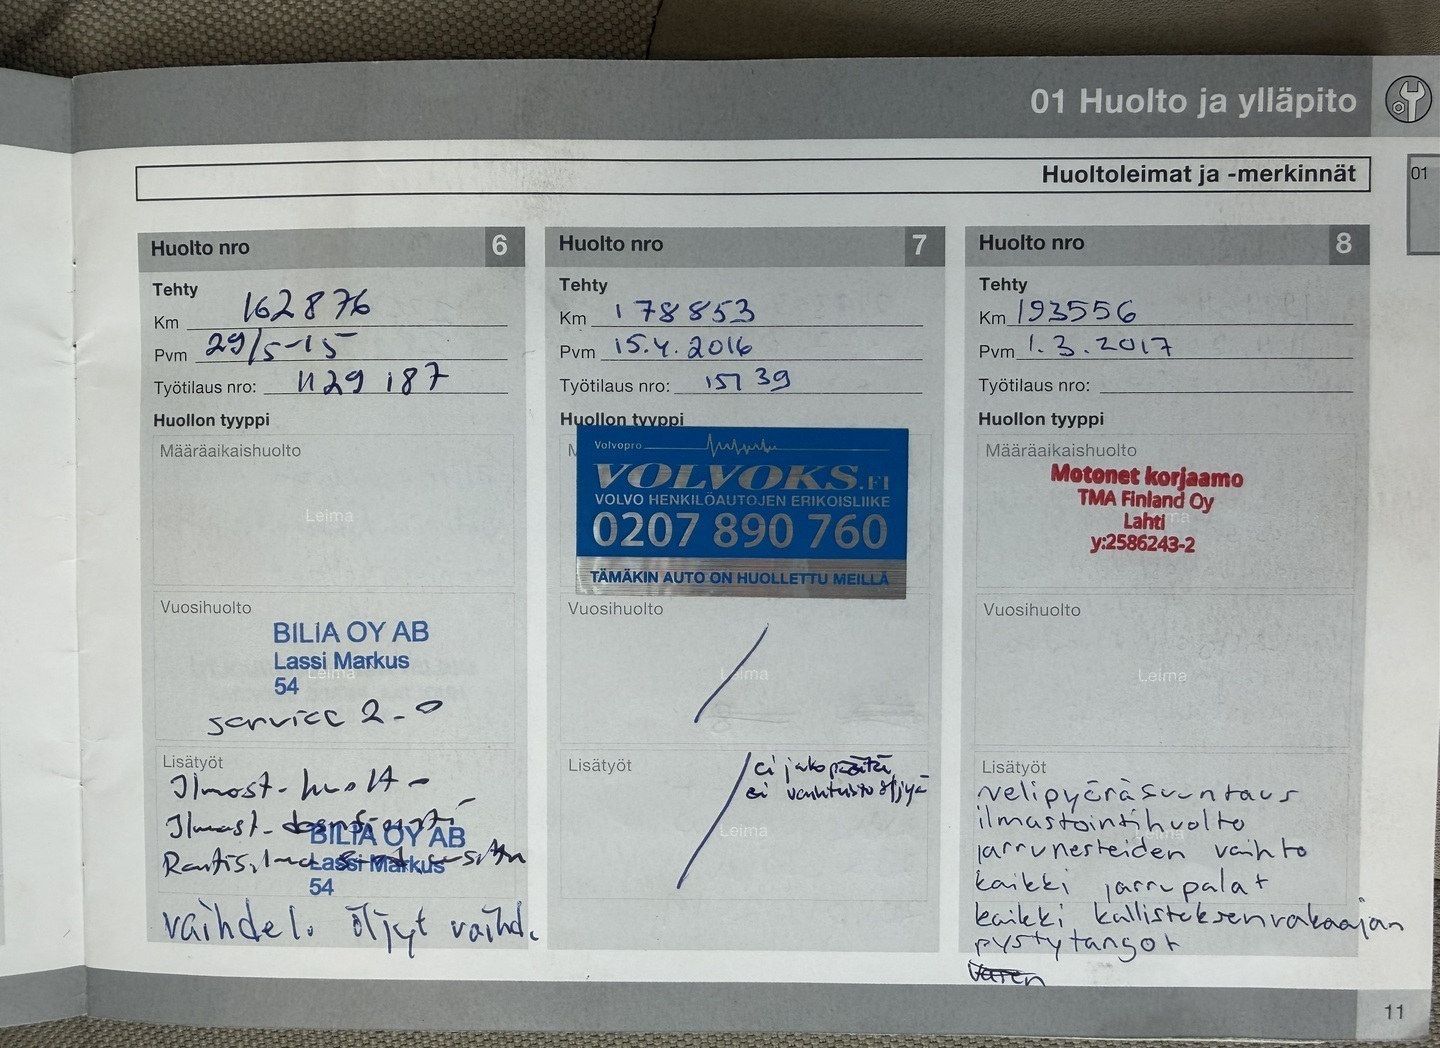 01 Huolto ja ylläpito
Huoltoleimat ja -merkinnät
01
Huolto nro 6
Tehty
Km 162876
Pvm 29/5-15
Työtilaus nro: 1129187
Huollon tyyppi
Määräaikaishuolto
Leima
Vuosihuolto
BILIA OY AB
Lassi Markus
Leima
54
service 2-0
Lisätyöt
Ilmast-huolt-
Ilmast-
BILIA OY AB
Lassi Markus
54
vaihdel. öljyt vaihd.
Huolto nro 7
Tehty
Km 178853
Pvm 15.4.2016
Työtilaus nro: 15739
Huollon tyyppi
Volvopro
VOLVOKS.FI
VOLVO HENKILÖAUTOJEN ERIKOISLIIKE
0207 890 760
TÄMÄKIN AUTO ON HUOLLETTU MEILLÄ
Vuosihuolto
Leima
Lisätyöt
ei jakopäätä
ei vaihteistoöljyä
Leima
Huolto nro 8
Tehty
Km 193556
Pvm 1.3.2017
Työtilaus nro:
Huollon tyyppi
Määräaikaishuolto
Motonet korjaamo
TMA Finland Oy
Lahti
y:2586243-2
Vuosihuolto
Leima
Lisätyöt
nelipyöräsuuntaus
ilmastointihuolto
Leima
jarrunesteiden vaihto
kaikki jarrupalat
kaikki kallistuksenvakaajan
pystytangot
11